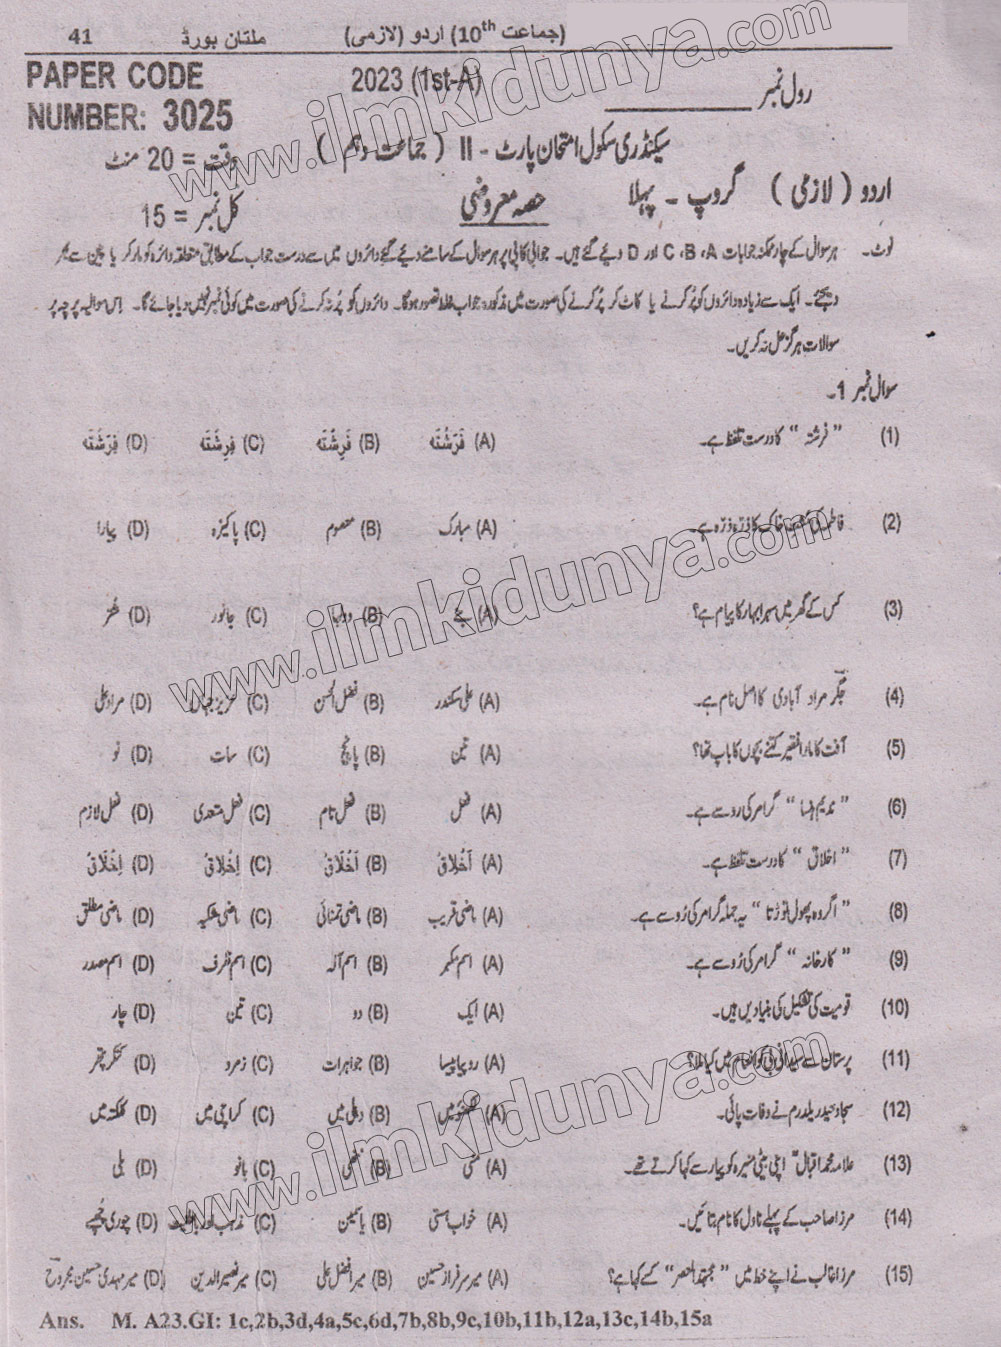 41 ملتان بورڈ (جماعت 10th) اردو (لازمی)
PAPER CODE 2023 (1st-A) رول نمبر
NUMBER: 3025
سیکنڈری سکول امتحان پارٹ - II ( جماعت دہم ) وقت = 20 منٹ
اردو ( لازمی ) گروپ - پہلا حصہ معروضی کل نمبر = 15
نوٹ۔ ہر سوال کے چار ممکنہ جوابات A، B، C اور D دیے گئے ہیں۔ جوابی کاپی پر ہر سوال کے سامنے دیے گئے دائروں میں سے درست جواب کے مطابق متعلقہ دائرہ کو مارکر یا پین سے بھر
دیجئے۔ ایک سے زیادہ دائروں کو پُر کرنے یا کاٹ کر پُر کرنے کی صورت میں مذکورہ جواب غلط تصور ہوگا۔ دائروں کو پُر نہ کرنے کی صورت میں کوئی نمبر نہیں دیا جائے گا۔ اِس سوالیہ پرچہ پر
سوالات ہرگز حل نہ کریں۔
سوال نمبر 1۔
(1) ”فرشتہ“ کا درست تلفظ ہے۔ (A) فَرَشْتَه (B) فَرِشْتَه (C) فِرِشْتَه (D) فِرَشْتَه
(2) خاک کا ذرّہ ذرّہ ہے۔ (A) مبارک (B) معصوم (C) پاکیزہ (D) پیارا
(3) کس کے گھر میں سہرا بہار کا پیام ہے؟ (A) بچے (B) دولہا (C) جانور (D) حُر
(4) جگر مراد آبادی کا اصل نام ہے۔ (A) علی سکندر (B) فضل الحسن (C) عزیز جہاں (D) مراد علی
(5) آفت کا مارا فقیر کتنے بچوں کا باپ تھا؟ (A) تین (B) پانچ (C) سات (D) نو
(6) ”ندیم ہنسا“ گرامر کی رو سے ہے۔ (A) فعل (B) فعل تام (C) فعل متعدی (D) فعل لازم
(7) ”اخلاق“ کا درست تلفظ ہے۔ (A) اَخْلِاقْ (B) اَخْلَاقْ (C) اِخْلِاقْ (D) اِخْلَاقْ
(8) ”اگر وہ پھول توڑتا“ یہ جملہ گرامر کی رُو سے ہے۔ (A) ماضی قریب (B) ماضی تمنائی (C) ماضی شکیہ (D) ماضی مطلق
(9) ”کارخانہ“ گرامر کی رُو سے ہے۔ (A) اسم مکبر (B) اسم آلہ (C) اسم ظرف (D) اسم مصدر
(10) قومیت کی تشکیل کی بنیادیں ہیں۔ (A) ایک (B) دو (C) تین (D) چار
(11) پرستان سے سیدانی بی کو انعام میں کیا ملا؟ (A) روپیا پیسا (B) جواہرات (C) زمرد (D) کنکر پتھر
(12) سجاد حیدر یلدرم نے وفات پائی۔ (A) لکھنؤ میں (B) دہلی میں (C) کراچی میں (D) کلکتہ میں
(13) علامہ محمد اقبالؒ اپنی بیٹی منیرہ کو پیار سے کہا کرتے تھے۔ (A) (B) ننھی (C) بانو (D) بلی
(14) مرزا صاحب کے پہلے ناول کا نام بتائیں۔ (A) خواب ہستی (B) یاسمین (C) مذہب اور باطنیت (D) چوری چُھپے
(15) مرزا غالب نے اپنے خط میں ”مجتہد العصر“ کسے کہا ہے؟ (A) میر سرفراز حسین (B) میر افضل علی (C) میر نصیر الدین (D) میر مہدی حسین مجروح
Ans. M. A23.GI: 1c,2b,3d,4a,5c,6d,7b,8b,9c,10b,11b,12a,13c,14b,15a
www.ilmkidunya.com
www.ilmkidunya.com
www.ilmkidunya.com